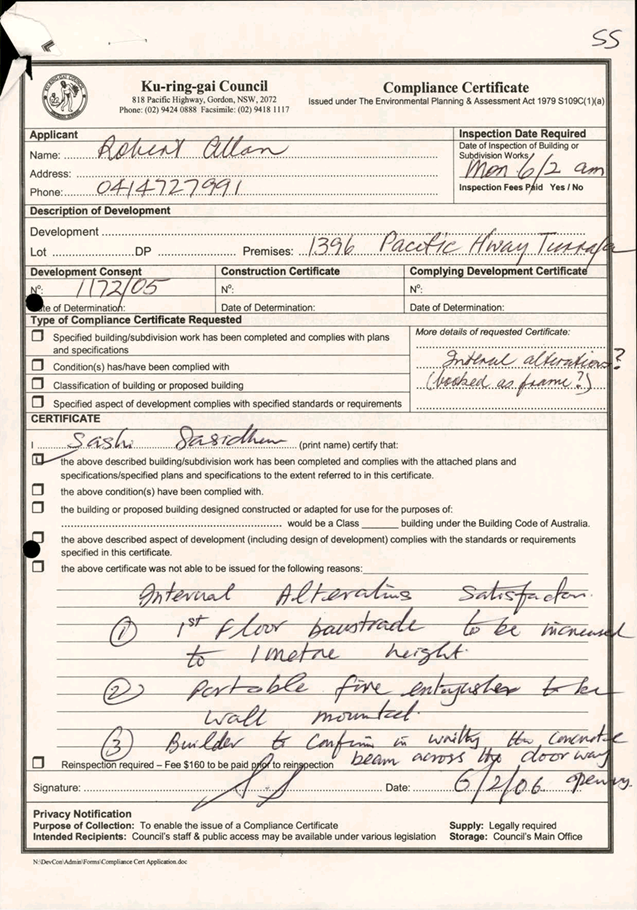 SS
KU-RING-GAI COUNCIL
Ku-ring-gai Council
818 Pacific Highway, Gordon, NSW, 2072
Phone: (02) 9424 0888 Facsimile: (02) 9418 1117
Compliance Certificate
Issued under The Environmental Planning & Assessment Act 1979 S109C(1)(a)
Applicant
Name: Robert Allan
Address:
Phone: 0414727991
Inspection Date Required
Date of Inspection of Building or
Subdivision Works
Mon 6/2 am
Inspection Fees Paid Yes / No
Description of Development
Development
Lot DP Premises: 1396 Pacific Hway
Development Consent
Nº: 1172/05
Date of Determination:
Construction Certificate
Nº:
Date of Determination:
Complying Development Certificate
Nº:
Date of Determination:
Type of Compliance Certificate Requested
Specified building/subdivision work has been completed and complies with plans
and specifications
Condition(s) has/have been complied with
Classification of building or proposed building
Specified aspect of development complies with specified standards or requirements
More details of requested Certificate:
Internal alterations?
(booked as frame?)
CERTIFICATE
I Sashi (print name) certify that:
the above described building/subdivision work has been completed and complies with the attached plans and
specifications/specified plans and specifications to the extent referred to in this certificate.
the above condition(s) have been complied with.
the building or proposed building designed constructed or adapted for use for the purposes of:
would be a Class ______ building under the Building Code of Australia.
the above described aspect of development (including design of development) complies with the standards or requirements
specified in this certificate.
the above certificate was not able to be issued for the following reasons:
Internal Alterations
① 1st Floor baustrade to be increased
to 1 metre height.
② Portable fire to be
wall mounted.
③ Builder to confirm in writing the concrete
beam across the doorway
opening.
Reinspection required – Fee $160 to be paid prior to reinspection
Signature: Date: 6/2/06
Privacy Notification
Purpose of Collection: To enable the issue of a Compliance Certificate
Intended Recipients: Council's staff & public access may be available under various legislation
Supply: Legally required
Storage: Council's Main Office
N:\DevCon\Admin\Forms\Compliance Cert Application.doc